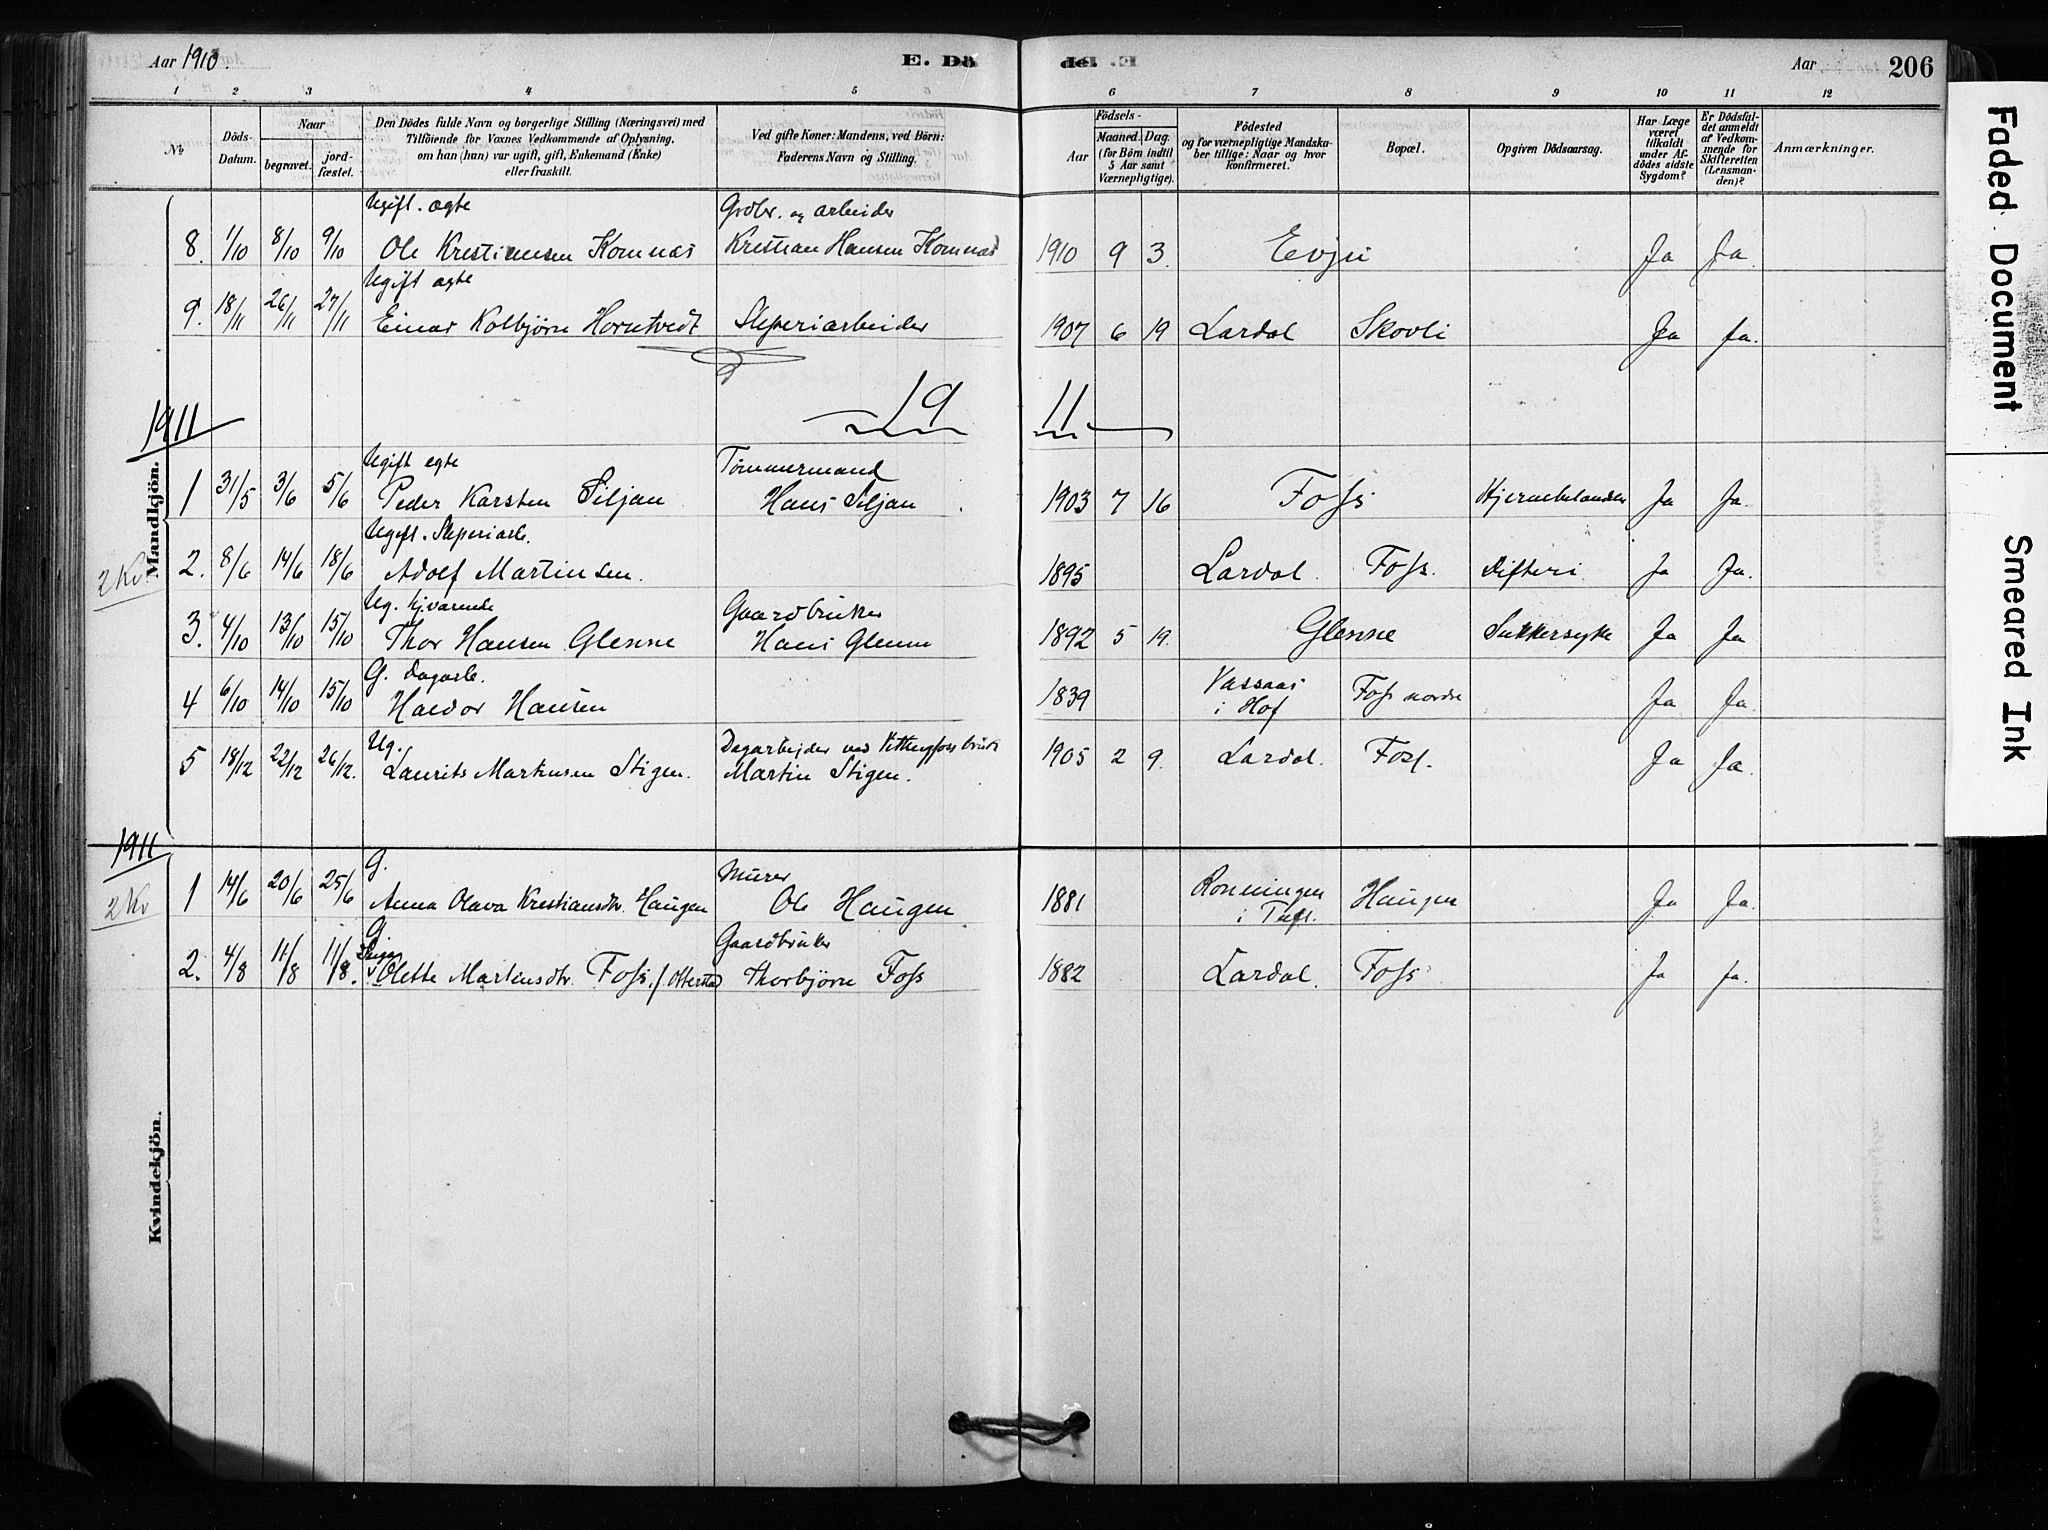 Aar 1910.
E. Dö
de.
Aar
206
1 2 3 4 5
6 7 8 9 10 11 12
№
Döds-Datum.
Naar
begravet.
jord-fæstet.
Den Dödes fulde Navn og borgerlige Stilling (Næringsvei) med
Tilföiende for Voxnes Vedkommende af Oplysning,
om han (hun) var ugift, gift, Enkemand (Enke)
eller fraskilt.
Ved gifte Koner: Mandens, ved Börn:
Faderens Navn og Stilling.
Födsels-
Aar
Maaned. Dag.
(for Börn indtil
5 Aar samt
Værnepligtige).
Födested
og for værnepligtige Mandska-
ber tillige: Naar og hvor
konfirmeret.
Bopæl.
Opgiven Dödsaarsag.
Har Læge
været
tilkaldt
under Af-
dödes sidste
Sygdom?
Er Dödsfal-
det anmeldt
af Vedkom-
mende for
Skifteretten
(Lensman-
den)?
Anmærkninger.
Ugift. ægte Grdbr. og arbeider
8. 1/10 8/10 9/10 Ole Kristiansen Komnæs Kristian Hansen Komnæs 1910 9 3. Evju Ja Ja.
Ugift ægte
9. 18/11 26/11 27/11 Einar Kolbjørn Horntvedt Sliperiarbeider 1907 6 19 Lardal Skovli Ja Ja.
1911 19 11
Mandkjön.
Ugift egte Tømmermand
1 31/5 3/6 5/6 Peder Karsten Siljan Hans Siljan 1903 7 16 Foss Hjernebetændelse Ja Ja.
Ugift. Sliperiarb.
2. 8/6 14/6 18/6 Adolf Martinsen. 1895 Lardal. Foss. Difteri Ja Ja.
2 Kv
Ug. hjværende Gaardbruker
3. 4/10 13/10 15/10 Thor Hansen Glenne Hans Glenne 1892 5 19. Glenne Sukkersyke Ja Ja
G. Dagarb.
4 6/10 14/10 15/10 Haldor Hansen 1839 Vassaas i Hof Foss nordre Ja Ja.
Ug. Dagarbeider ved Vittingfoss bruk
5 18/12 22/12 26/12. Laurits Martinsen Stigen. Martin Stigen. 1905 2 9. Lardal. Foss. Ja Ja.
1911
G. Murer
1 14/6 20/6 25/6 Anna Olava Kristiansdtr. Haugen Ole Haugen 1881 Rønningen i Haugen Ja Ja.
2 Kv
G Gaardbruker
2. 4/8 11/8 11/8. Olette Martinsdtr. Foss. Thorbjørn Foss 1882 Lardal. Foss Ja Ja.
Kvindekjön.
Faded Document
Smeared Ink